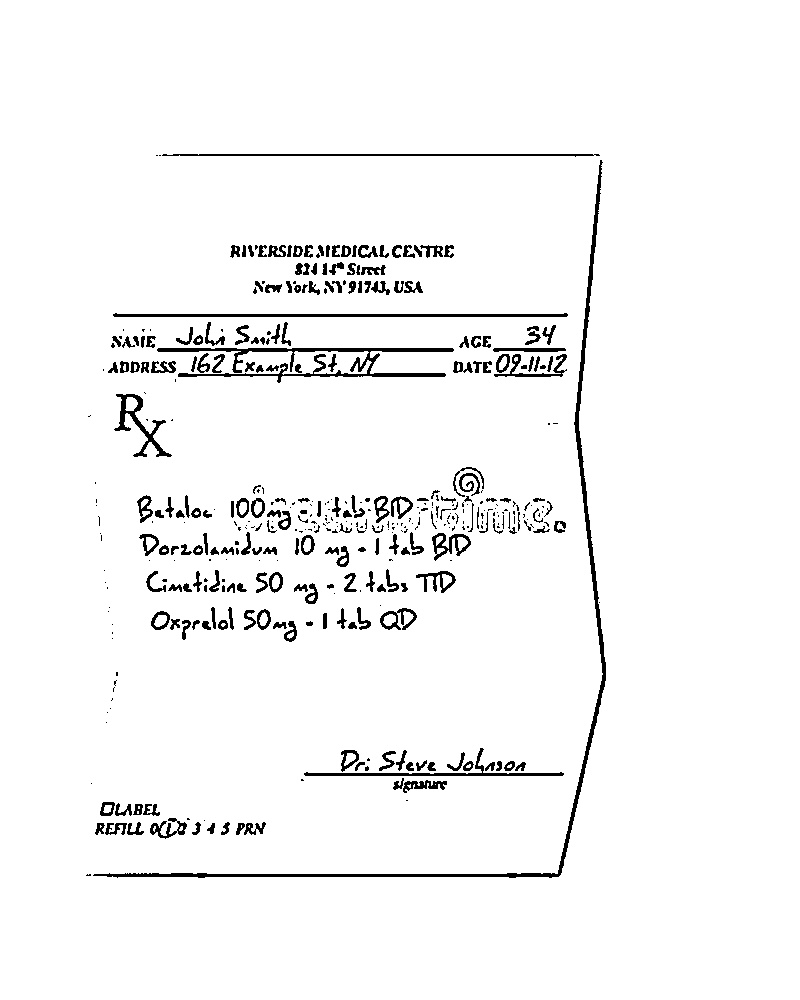 RIVERSIDE MEDICAL CENTRE
824 14th Street
New York, NY 91743, USA
NAME John Smith AGE 34
ADDRESS 162 Example St, NY DATE 09-11-12
Rx
Betaloc 100mg - 1 tab BID
dreamstime.
Dorzolamidum 10 mg - 1 tab BID
Cimetidine 50 mg - 2 tabs TID
Oxprelol 50mg - 1 tab QD
Dr. Steve Johnson
signature
LABEL
REFILL 0 1 2 3 4 5 PRN